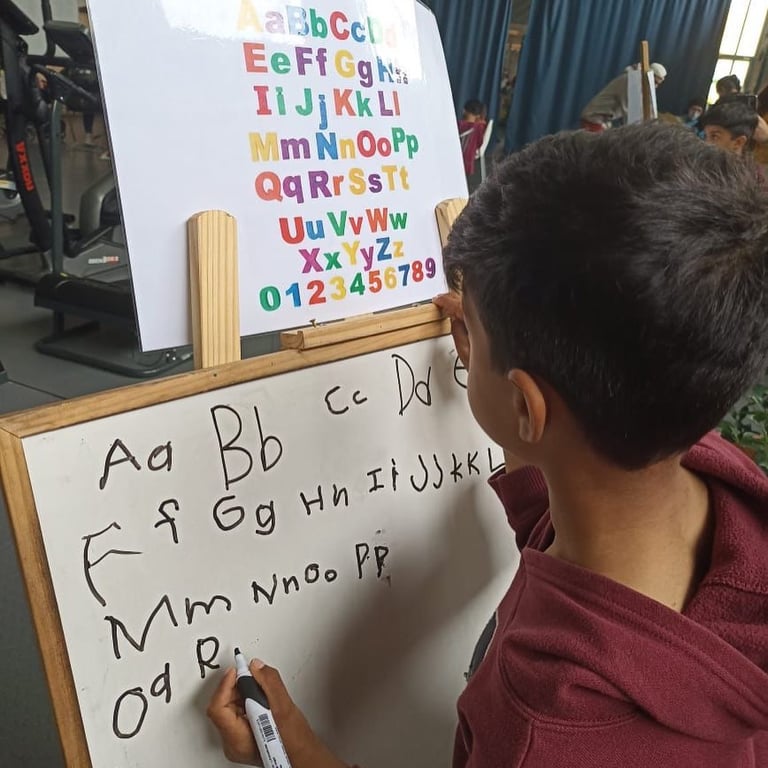 AaBbCcDd
EeFfGgHh
IiJjKkLl
MmNnOoPp
QqRrSsTt
UuVvWw
XxYyZz
0123456789
Aa Bb Cc Dd
F f Gg Hh Ii Jj KK L
Mm Nn Oo Pp
Oq R